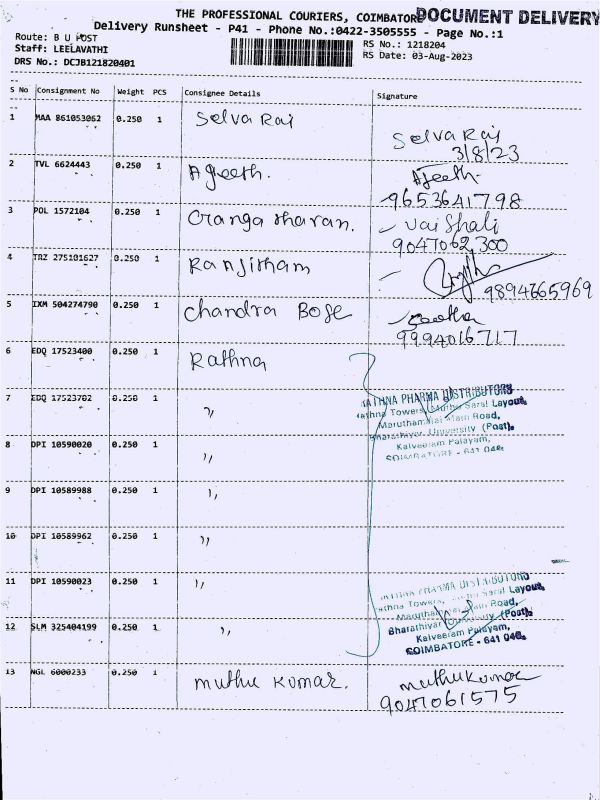 THE PROFESSIONAL COURIERS, COIMBATORE
DOCUMENT DELIVERY
Delivery Runsheet - P41 - Phone No.:0422-3505555 - Page No.:1
Route: B U POST
Staff: LEELAVATHI
DRS No.: DCJB121820401
RS No.: 1218204
RS Date: 03-Aug-2023
S No Consignment No Weight PCS Consignee Details Signature
1 MAA 861053062 0.250 1 Selva Raj Selva Raj
3/8/23
2 TVL 6624443 0.250 1 Ajeeth. Ajeeth
9653641798
3 POL 1572104 0.250 1 Oranga tharan. Vaishali
9047062300
4 TRZ 275101627 0.250 1 Ranjitham
9894665969
5 IXM 504274790 0.250 1 Chandra Bose
9994016717
6 EDQ 17523400 0.250 1 Rathna
7 EDQ 17523702 0.250 1 ,,
RATHNA PHARMA DISTRIBUTORS
Rathna Towers, Muthu Saral Layout,
Maruthamalai Main Road,
Bharathiyar University (Post),
Kalveeram Palayam,
COIMBATORE - 641 046.
8 DPI 10590020 0.250 1 ,,
9 DPI 10589988 0.250 1 ,,
10 DPI 10589962 0.250 1 ,,
11 DPI 10590023 0.250 1 ,,
RATHNA PHARMA DISTRIBUTORS
Rathna Towers, Muthu Saral Layout,
Maruthamalai Main Road,
Bharathiyar University (Post),
Kalveeram Palayam,
COIMBATORE - 641 046.
12 SLM 325404199 0.250 1 ,,
13 NGL 6000233 0.250 1 Muthu Kumar. Muthukumar
9047061575